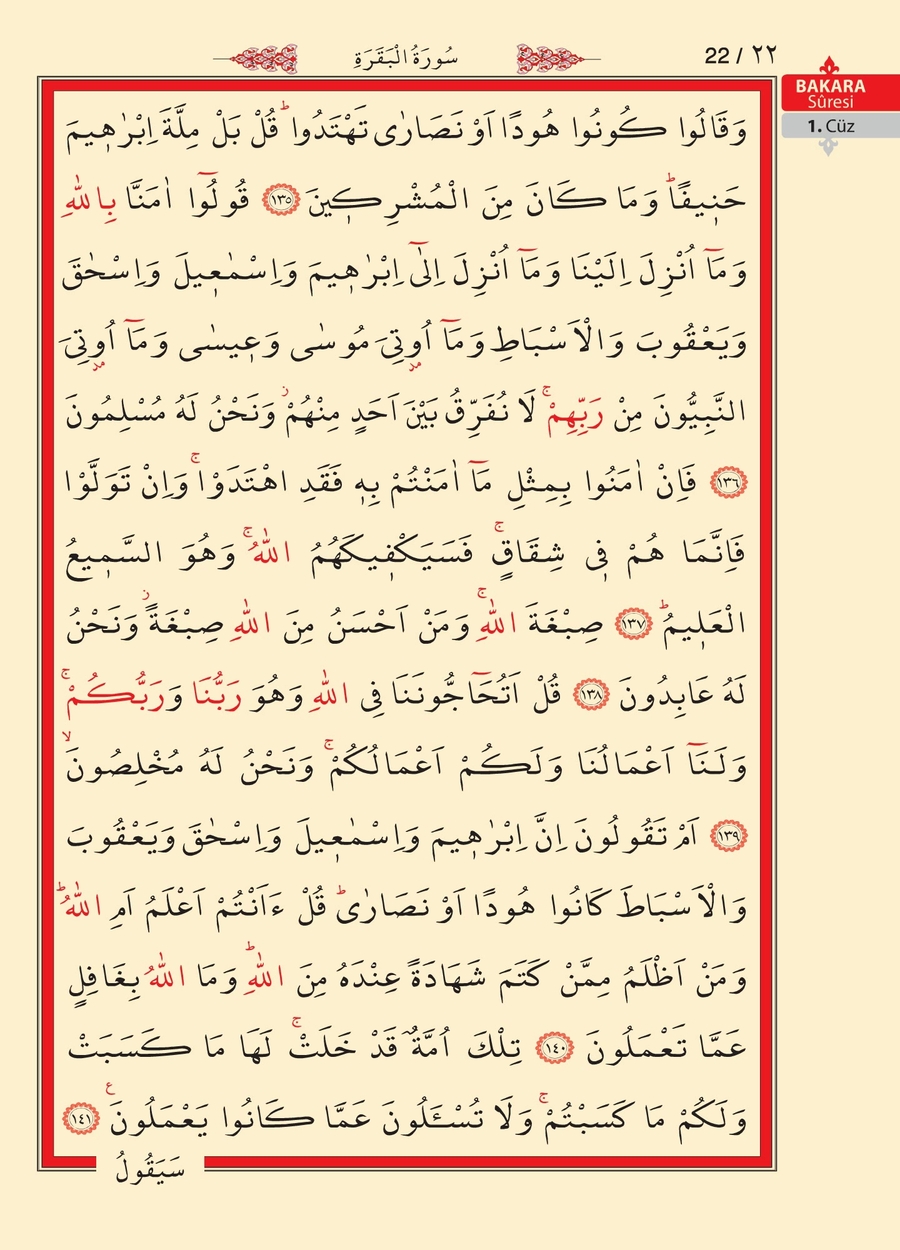 سُورَةُ الْبَقَرَةِ
22 / ٢٢
BAKARA
Sûresi
1. Cüz
وَقَالُوا كُونُوا هُودًا اَوْ نَصَارٰى تَهْتَدُواۜ قُلْ بَلْ مِلَّةَ اِبْرٰه۪يمَ
حَن۪يفًاۜ وَمَا كَانَ مِنَ الْمُشْرِك۪ينَ ﴿١٣٥﴾ قُولُٓوا اٰمَنَّا بِاللّٰهِ
وَمَٓا اُنْزِلَ اِلَيْنَا وَمَٓا اُنْزِلَ اِلٰٓى اِبْرٰه۪يمَ وَاِسْمٰع۪يلَ وَاِسْحٰقَ
وَيَعْقُوبَ وَالْاَسْبَاطِ وَمَٓا اُو۫تِيَ مُوسٰى وَع۪يسٰى وَمَٓا اُو۫تِيَ
النَّبِيُّونَ مِنْ رَبِّهِمْۚ لَا نُفَرِّقُ بَيْنَ اَحَدٍ مِنْهُمْۘ وَنَحْنُ لَهُ مُسْلِمُونَ
﴿١٣٦﴾ فَاِنْ اٰمَنُوا بِمِثْلِ مَٓا اٰمَنْتُمْ بِه۪ فَقَدِ اهْتَدَوْاۚ وَاِنْ تَوَلَّوْا
فَاِنَّمَا هُمْ ف۪ي شِقَاقٍۚ فَسَيَكْف۪يكَهُمُ اللّٰهُۚ وَهُوَ السَّم۪يعُ
الْعَل۪يمُۜ ﴿١٣٧﴾ صِبْغَةَ اللّٰهِۚ وَمَنْ اَحْسَنُ مِنَ اللّٰهِ صِبْغَةًۘ وَنَحْنُ
لَهُ عَابِدُونَ ﴿١٣٨﴾ قُلْ اَتُحَٓاجُّونَنَا فِي اللّٰهِ وَهُوَ رَبُّنَا وَرَبُّكُمْۚ
وَلَنَٓا اَعْمَالُنَا وَلَكُمْ اَعْمَالُكُمْۚ وَنَحْنُ لَهُ مُخْلِصُونَۙ
﴿١٣٩﴾ اَمْ تَقُولُونَ اِنَّ اِبْرٰه۪يمَ وَاِسْمٰع۪يلَ وَاِسْحٰقَ وَيَعْقُوبَ
وَالْاَسْبَاطَ كَانُوا هُودًا اَوْ نَصَارٰىۜ قُلْ ءَاَنْتُمْ اَعْلَمُ اَمِ اللّٰهُۜ
وَمَنْ اَظْلَمُ مِمَّنْ كَتَمَ شَهَادَةً عِنْدَهُ مِنَ اللّٰهِۜ وَمَا اللّٰهُ بِغَافِلٍ
عَمَّا تَعْمَلُونَ ﴿١٤٠﴾ تِلْكَ اُمَّةٌ قَدْ خَلَتْۚ لَهَا مَا كَسَبَتْ
وَلَكُمْ مَا كَسَبْتُمْۚ وَلَا تُسْـَٔلُونَ عَمَّا كَانُوا يَعْمَلُونَ ع ﴿١٤١﴾
سَيَقُولُ